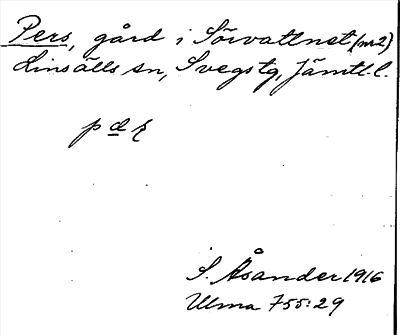 Pers, gård i Sörvattnet (nr 2)
Linsälls sn, Svegs tg, Jämtl. l.
S. Åsander 1916
Ulma 755:29